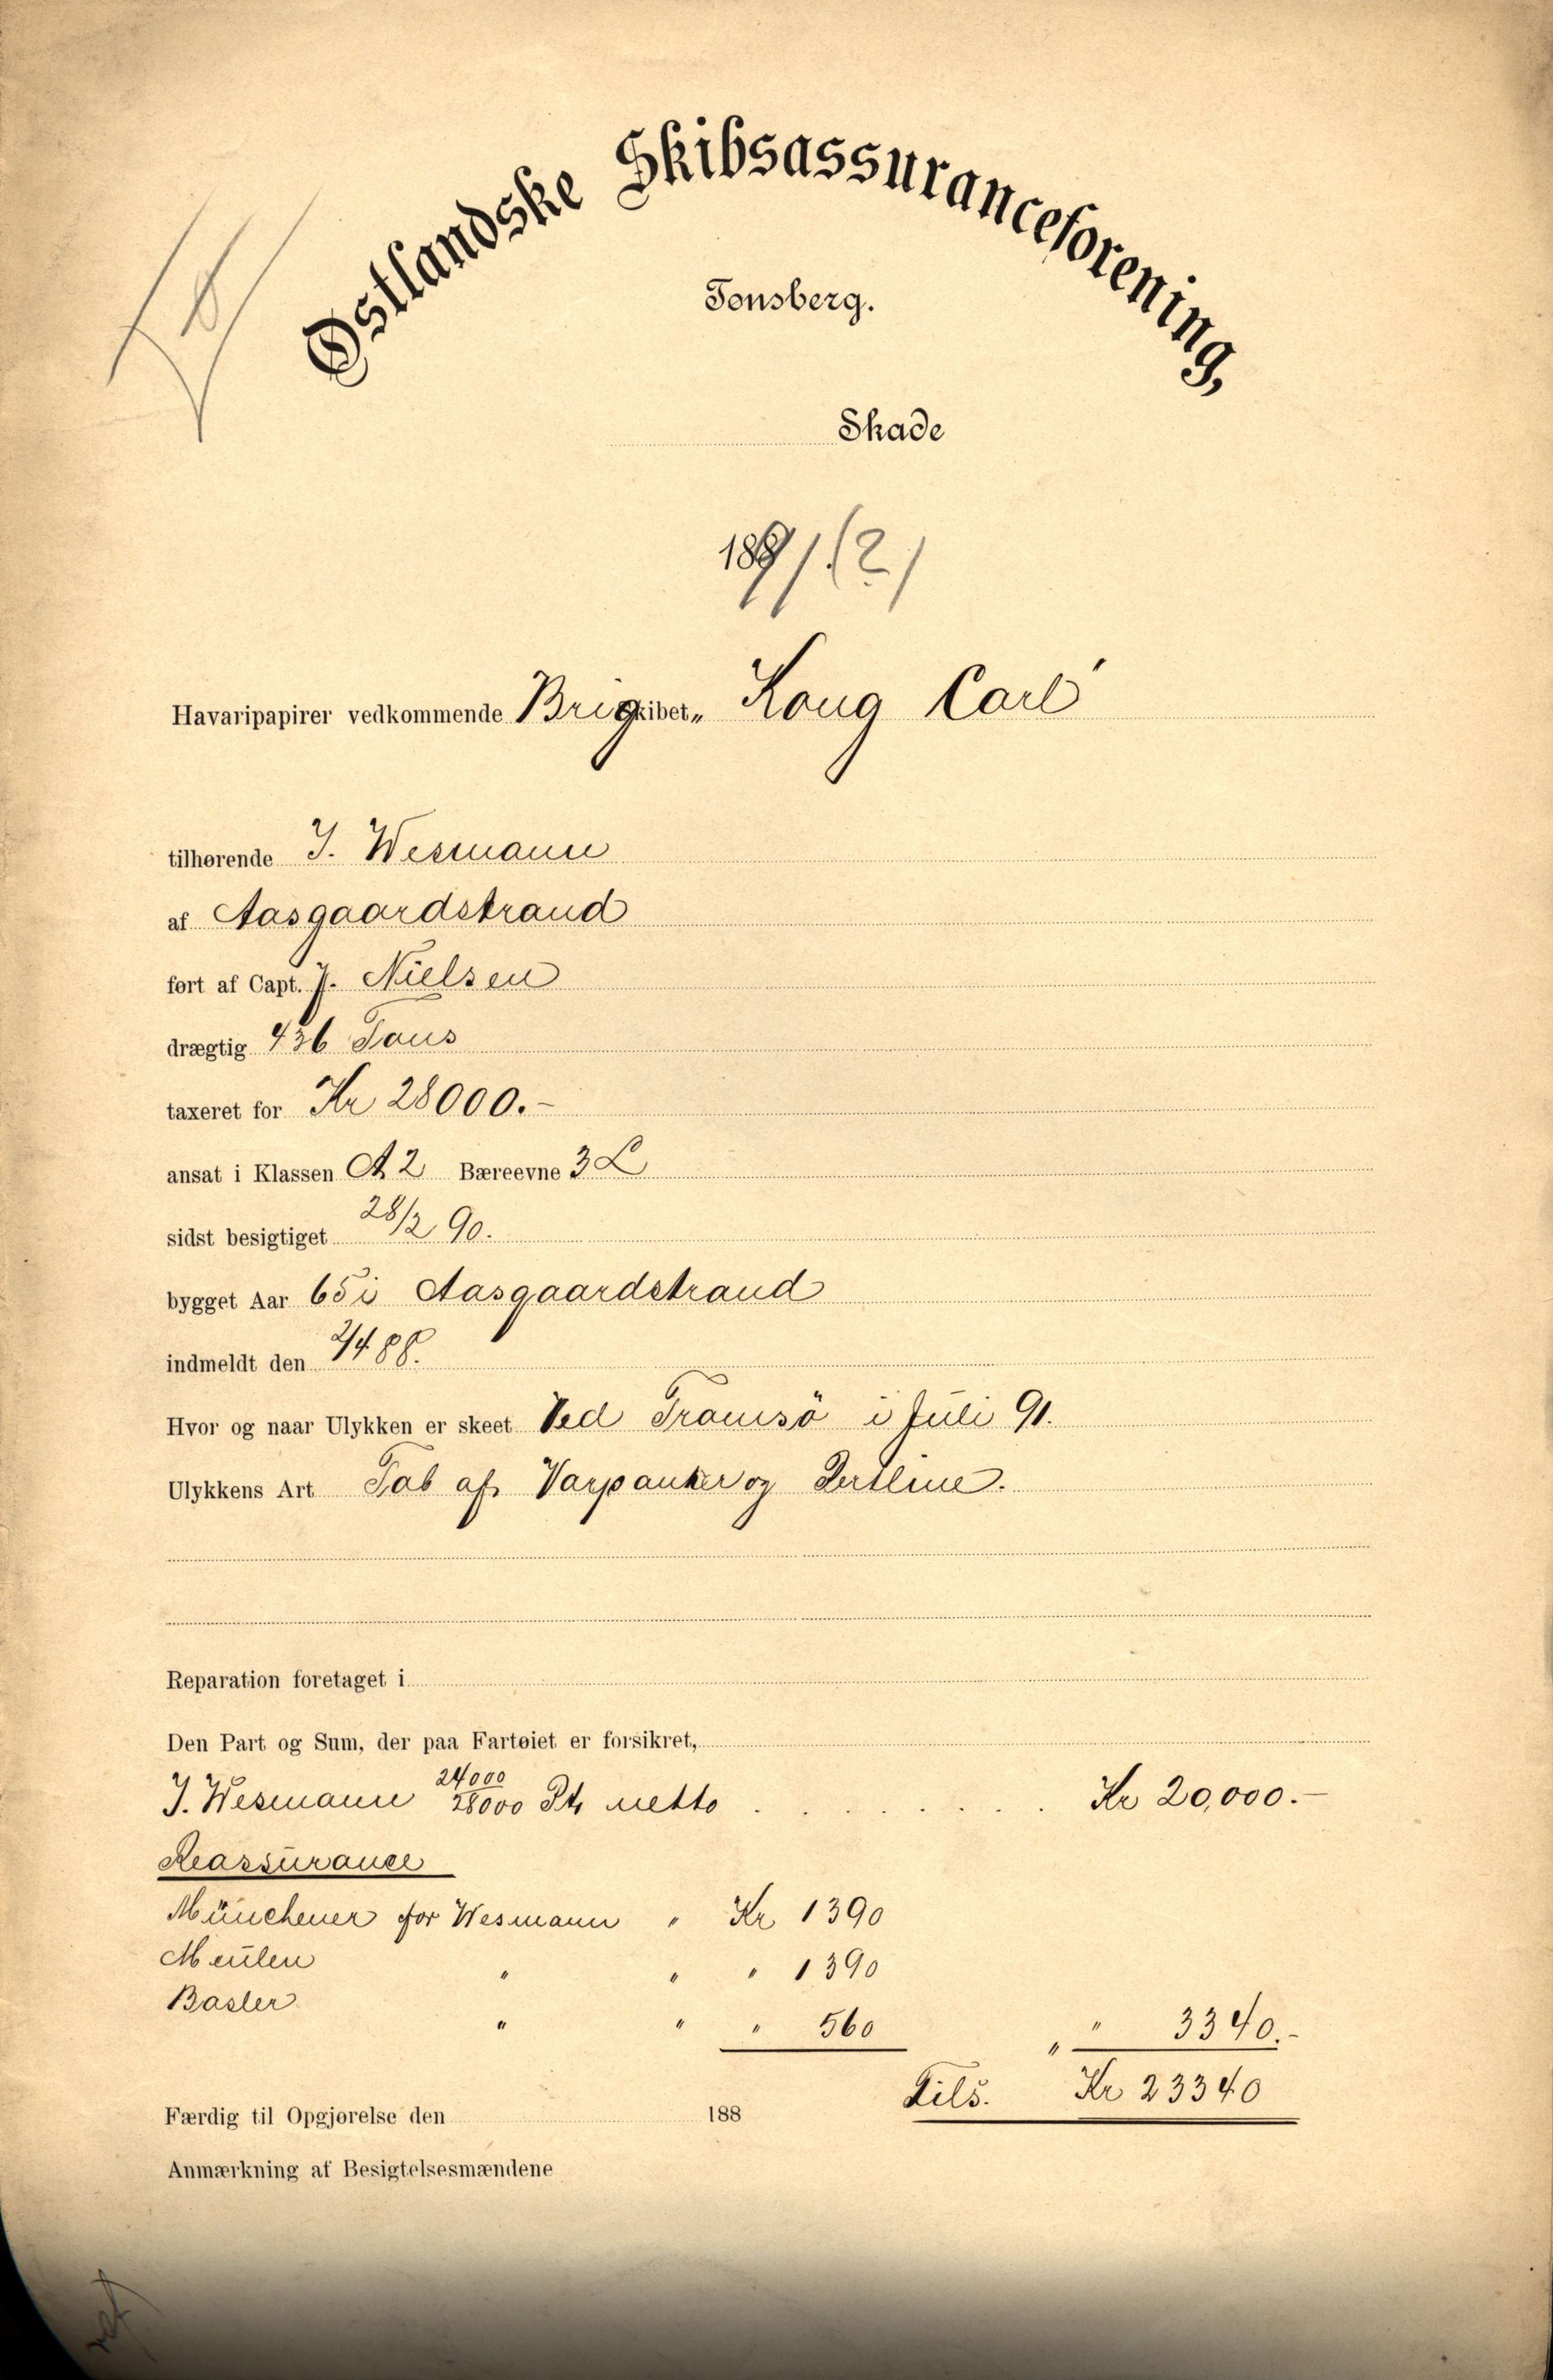 Østlandske Skibsassuranceforening,
Tønsberg.
Skade
1891. (2)
Havaripapirer vedkommende Brigskibet „Kong Carl"
tilhørende J. Wesmann
af Aasgaardstrand
ført af Capt. J. Nielsen
drægtig 436 Tons
taxeret for Kr 28000.-
ansat i Klassen A 2 Bæreevne 3 L
sidst besigtiget 28/2 90.
bygget Aar 65 i Aasgaardstrand
indmeldt den 2/4 88.
Hvor og naar Ulykken er skeet Ved Tromsö i Juli 91.
Ulykkens Art Tab af Varpanker og Pertline.
Reparation foretaget i
Den Part og Sum, der paa Fartøiet er forsikret,
J. Wesmann 24000/28000 Pt netto . . . . . . . . Kr 20,000.-
Reassurance
Münchener for Wesmann " Kr 1390
Meulen " " " 1390
Basler " " " 560 " " 3340.-
Tils. Kr 23340
Færdig til Opgjørelse den 188
Anmærkning af Besigtelsesmændene